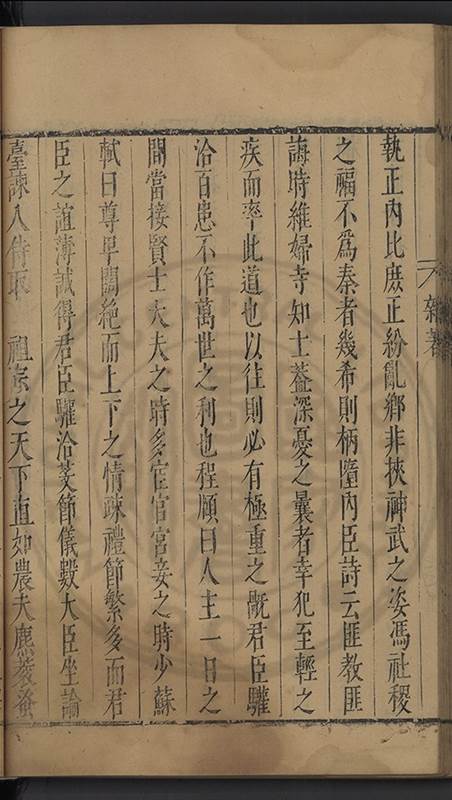 雜著
執正內比庶正紛亂鄉非挾神武之姿馮社稷
之福不為秦者幾希則柄墮內臣詩云匪教匪
誨時維婦寺知士蓋深憂之曩者幸犯至輕之
疾而率此道也以往則必有極重之戤君臣驩
洽百患不作萬世之利也程頤曰人主一日之
間當接賢士大夫之時多宦官宮妾之時少蘇
軾曰尊卑闊絶而上下之情疎禮節繁多而君
臣之誼薄誠得君臣驩洽芟節儀毀大臣坐論
臺諫入侍取 祖宗之天下直如農夫麃蓘